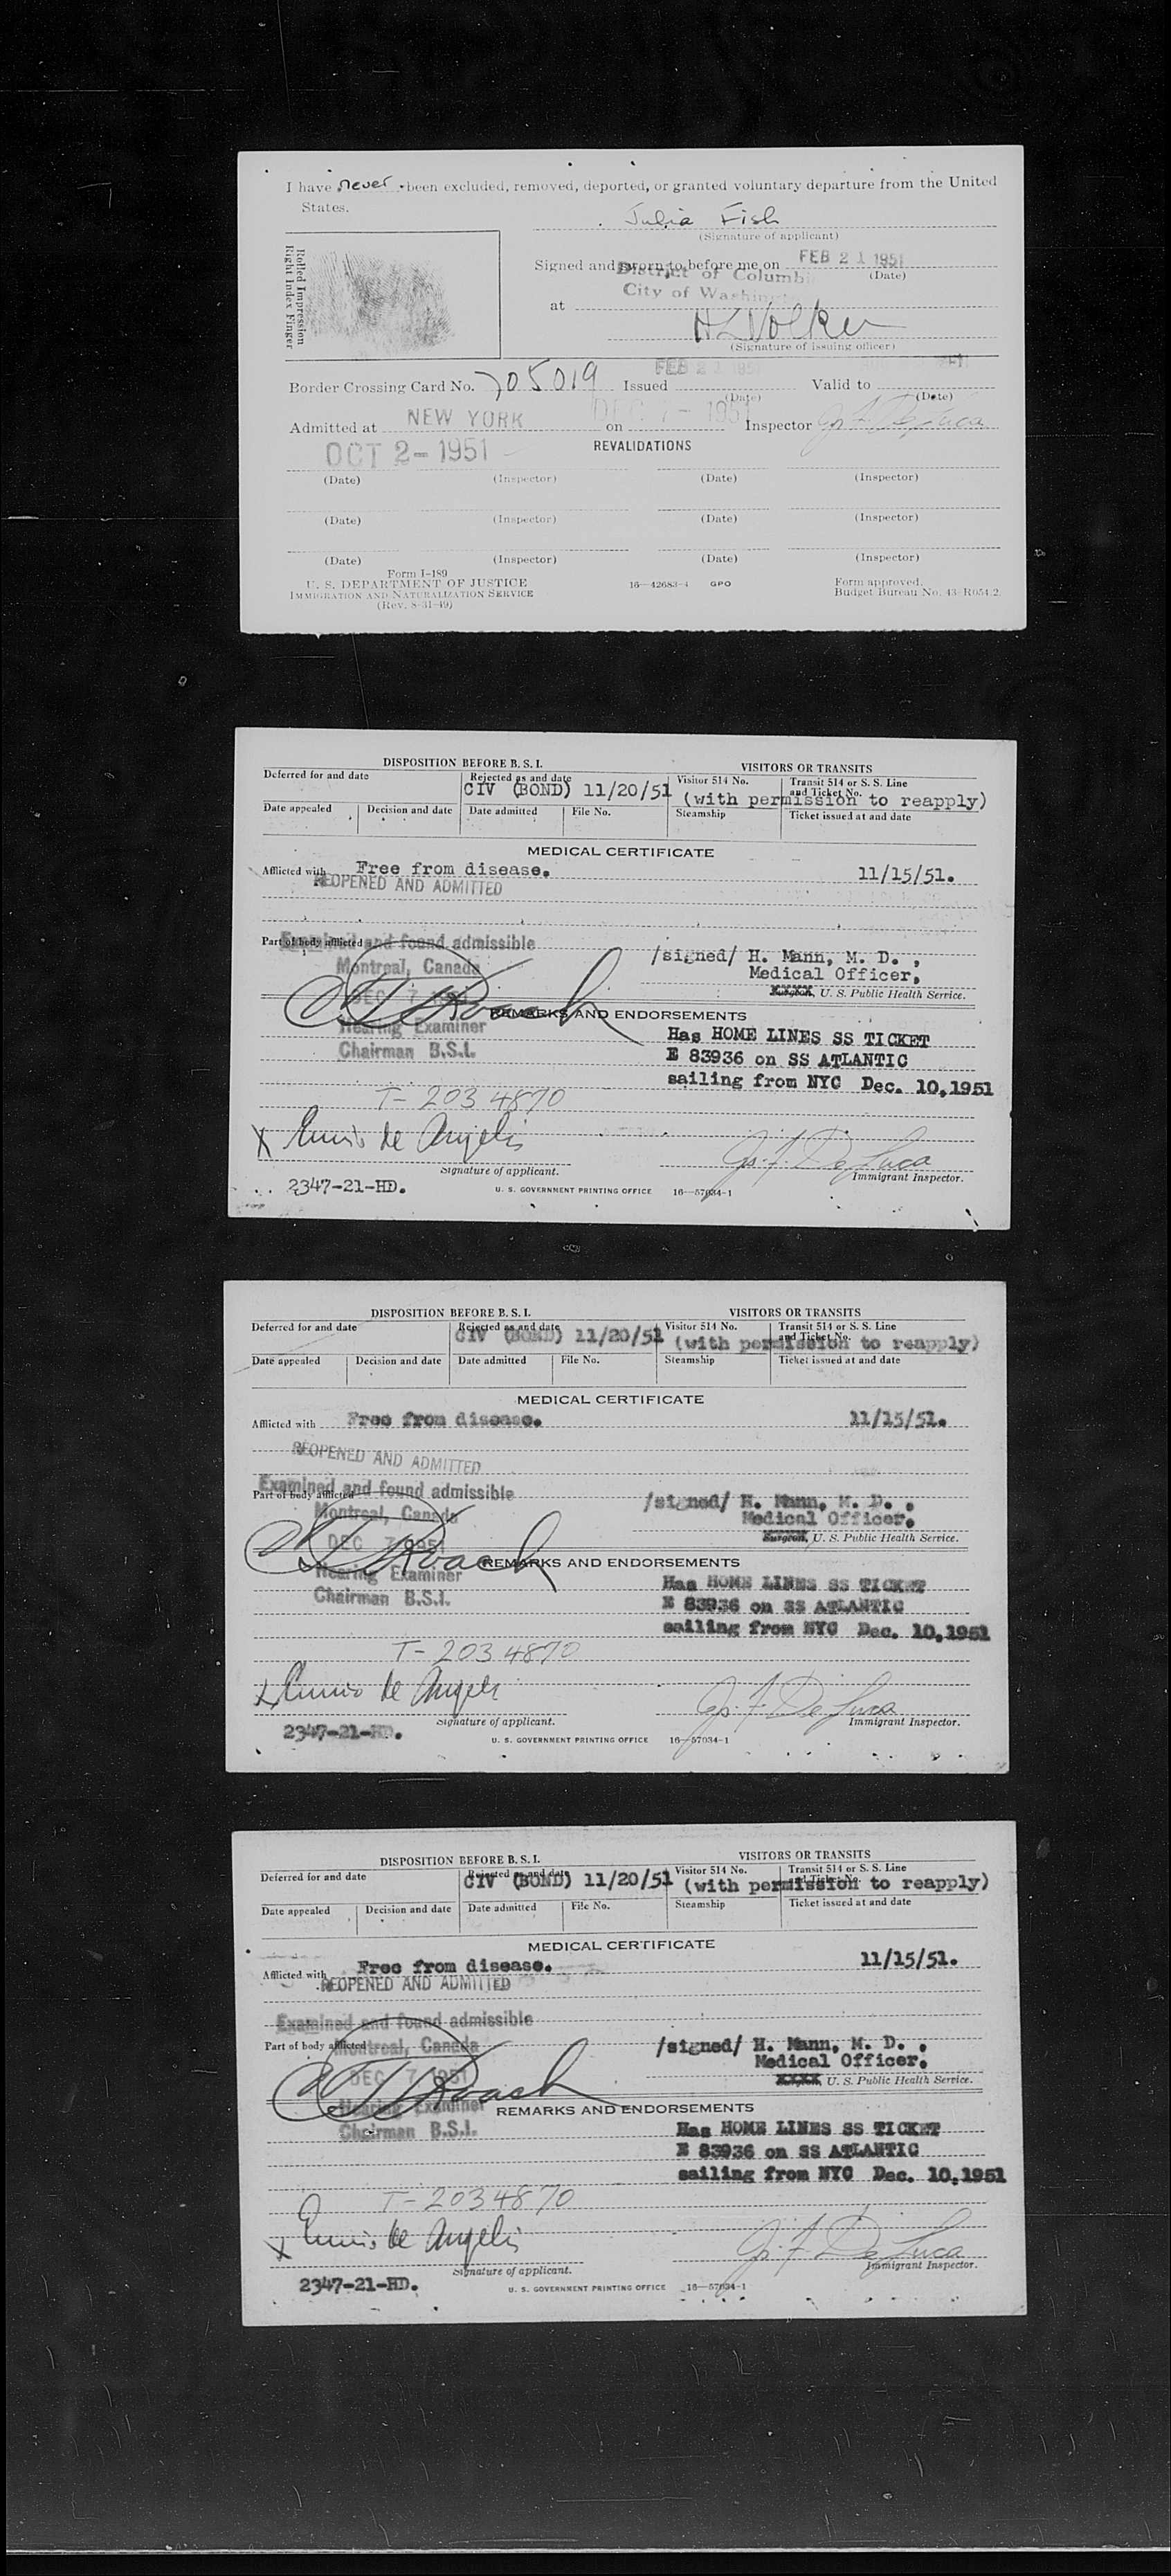 I have never been excluded, removed, deported, or granted voluntary departure from the United
States.
Julia Fish
(Signature of applicant)
Rolled Impression
Right Index Finger
Signed and sworn to before me on FEB 21 1951
(Date)
District of Columbia
City of Washington
at
H L Volker
(Signature of issuing officer)
Border Crossing Card No. 705019 Issued FEB 21 1951 Valid to
(Date) (Date)
Admitted at NEW YORK on DEC 7 - 1951 Inspector Jos. F. De Luca
OCT 2 - 1951 REVALIDATIONS
(Date) (Inspector) (Date) (Inspector)
(Date) (Inspector) (Date) (Inspector)
(Date) (Inspector) (Date) (Inspector)
Form I-189
U. S. DEPARTMENT OF JUSTICE 16—42683-4 GPO Form approved.
IMMIGRATION AND NATURALIZATION SERVICE Budget Bureau No. 43-R054.2.
(Rev. 8-31-49)
DISPOSITION BEFORE B. S. I. VISITORS OR TRANSITS
Deferred for and date Rejected as and date Visitor 514 No. Transit 514 or S. S. Line
and Ticket No.
CIV (BOND) 11/20/51 (with permission to reapply)
Date appealed Decision and date Date admitted File No. Steamship Ticket issued at and date
MEDICAL CERTIFICATE
Afflicted with Free from disease. 11/15/51.
REOPENED AND ADMITTED
Part of body afflicted Examined and found admissible
Montreal, Canada /signed/ H. Mann, M. D. ,
Medical Officer,
DEC 7 1951 Surgeon, U. S. Public Health Service.
C T Roach REMARKS AND ENDORSEMENTS
Hearing Examiner Has HOME LINES SS TICKET
Chairman B.S.I. E 83936 on SS ATLANTIC
sailing from NYC Dec. 10,1951
T-2034870
X Ennio de Angelis Jos. F. De Luca
Signature of applicant. Immigrant Inspector.
2347-21-HD. U. S. GOVERNMENT PRINTING OFFICE 16—57034-1
DISPOSITION BEFORE B. S. I. VISITORS OR TRANSITS
Deferred for and date Rejected as and date Visitor 514 No. Transit 514 or S. S. Line
and Ticket No.
CIV (BOND) 11/20/51 (with permission to reapply)
Date appealed Decision and date Date admitted File No. Steamship Ticket issued at and date
MEDICAL CERTIFICATE
Afflicted with Free from disease. 11/15/51.
REOPENED AND ADMITTED
Examined and found admissible
Part of body afflicted
Montreal, Canada /signed/ H. Mann, M. D. ,
Medical Officer,
DEC 7 1951 Surgeon, U. S. Public Health Service.
C T Roach REMARKS AND ENDORSEMENTS
Hearing Examiner Has HOME LINES SS TICKET
Chairman B.S.I. E 83936 on SS ATLANTIC
sailing from NYC Dec. 10,1951
T-2034870
x Ennio de Angelis Jos. F. De Luca
Signature of applicant. Immigrant Inspector.
2347-21-HD. U. S. GOVERNMENT PRINTING OFFICE 16—57034-1
DISPOSITION BEFORE B. S. I. VISITORS OR TRANSITS
Deferred for and date Rejected as and date Visitor 514 No. Transit 514 or S. S. Line
and Ticket No.
CIV (BOND) 11/20/51 (with permission to reapply)
Date appealed Decision and date Date admitted File No. Steamship Ticket issued at and date
MEDICAL CERTIFICATE
Afflicted with Free from disease. 11/15/51.
REOPENED AND ADMITTED
Examined and found admissible
Part of body afflicted Montreal, Canada /signed/ H. Mann, M. D. ,
Medical Officer,
DEC 7 1951 U. S. Public Health Service.
C T Roach
Hearing Examiner REMARKS AND ENDORSEMENTS
Chairman B.S.I. Has HOME LINES SS TICKET
E 83936 on SS ATLANTIC
sailing from NYC Dec. 10,1951
T-2034870
x Ennio de Angelis Jos. F. De Luca
Signature of applicant. Immigrant Inspector.
2347-21-HD. U. S. GOVERNMENT PRINTING OFFICE 16—57034-1